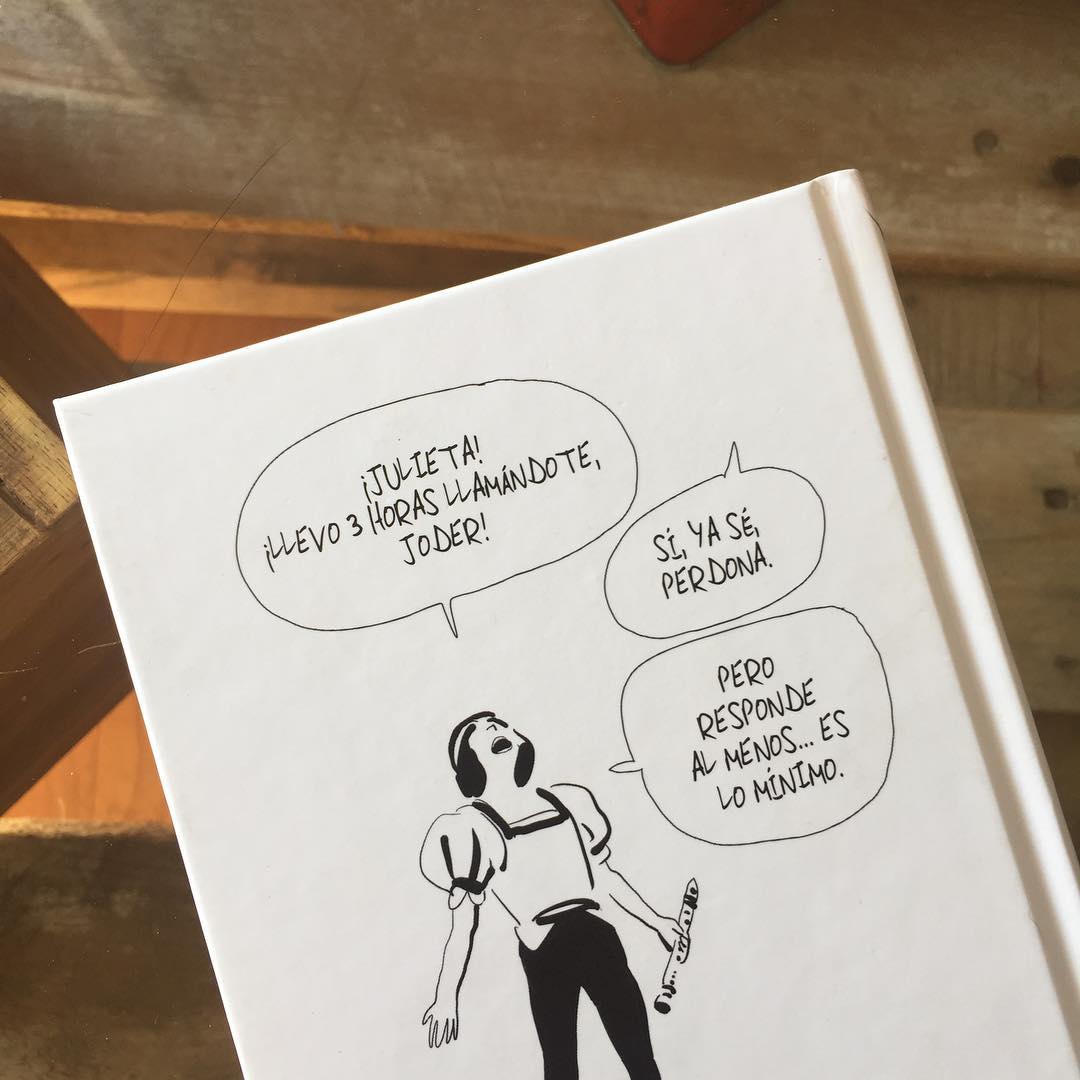 ¡JULIETA!
¡LLEVO 3 HORAS LLAMÁNDOTE,
JODER!
SÍ, YA SÉ,
PERDONA.
PERO
RESPONDE
AL MENOS... ES
LO MÍNIMO.